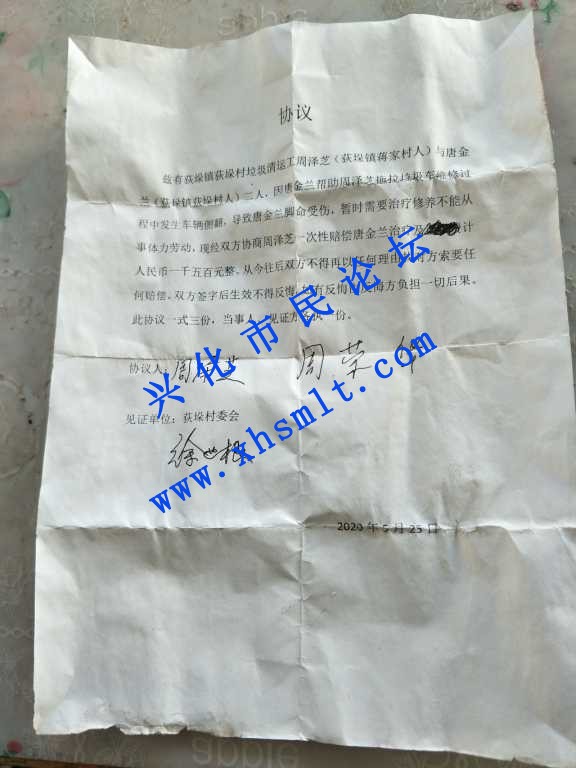 协议
兹有荻垛镇荻垛村垃圾清运工周泽芝（荻垛镇蒋家村人）与唐金
兰（荻垛镇荻垛村人）二人，因唐金兰帮助周泽芝拖拉垃圾车维修过
程中发生车辆侧翻，导致唐金兰脚命受伤，暂时需要治疗修养不能从
事体力劳动，现经双方协商周泽芝一次性赔偿唐金兰治疗及 计
人民币一千五百元整，从今往后双方不得再以任何理由 对方索要任
何赔偿。双方签字后生效不得反悔，如有反悔由反悔方负担一切后果。
此协议一式三份，当事人 见证方各执一份。
协议人：周泽芝 周荣
见证单位：荻垛村委会
徐世根
2020年5月25日
兴化市民论坛
www.xhsmlt.com
apple
apple